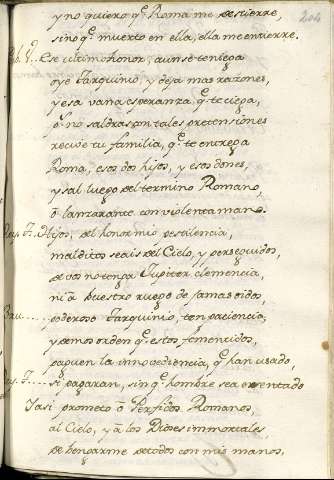 204
y no quiero q̃. Roma me destierre,
sino q̃. muerto en ella, ella me entierre.
Pub. Ese ultimo honor, aun se te niega
oye Tarquinio, y deja mas razones,
y esa vana esperanza q̃. te ciega,
q̃. no saldras con tales pretensiones
recive tu familia, q̃. te entrega
Roma, esos dos hijos, y esos dones,
y sal luego del termino Romano,
o lanzarante con violenta mano.
Rey. T. Hijos, del honor mio pestilencia,
malditos seais del Cielo, y perseguidos,
de vos no tenga Jupiter clemencia,
ni à vuestro ruego dè jamas oidos,
Bru.... poderoso Tarquinio, ten paciencia;
y demos orden q̃. estos fementidos,
paguen la innovediencia, q̃. han usado,
Rey. T.... si pagaran, sin q̃. hombre sea esentado
Y asi prometo ò Perfidos Romanos,
al Cielo, y à los Dioses immortales,
de bengarme de todos con mis manos,